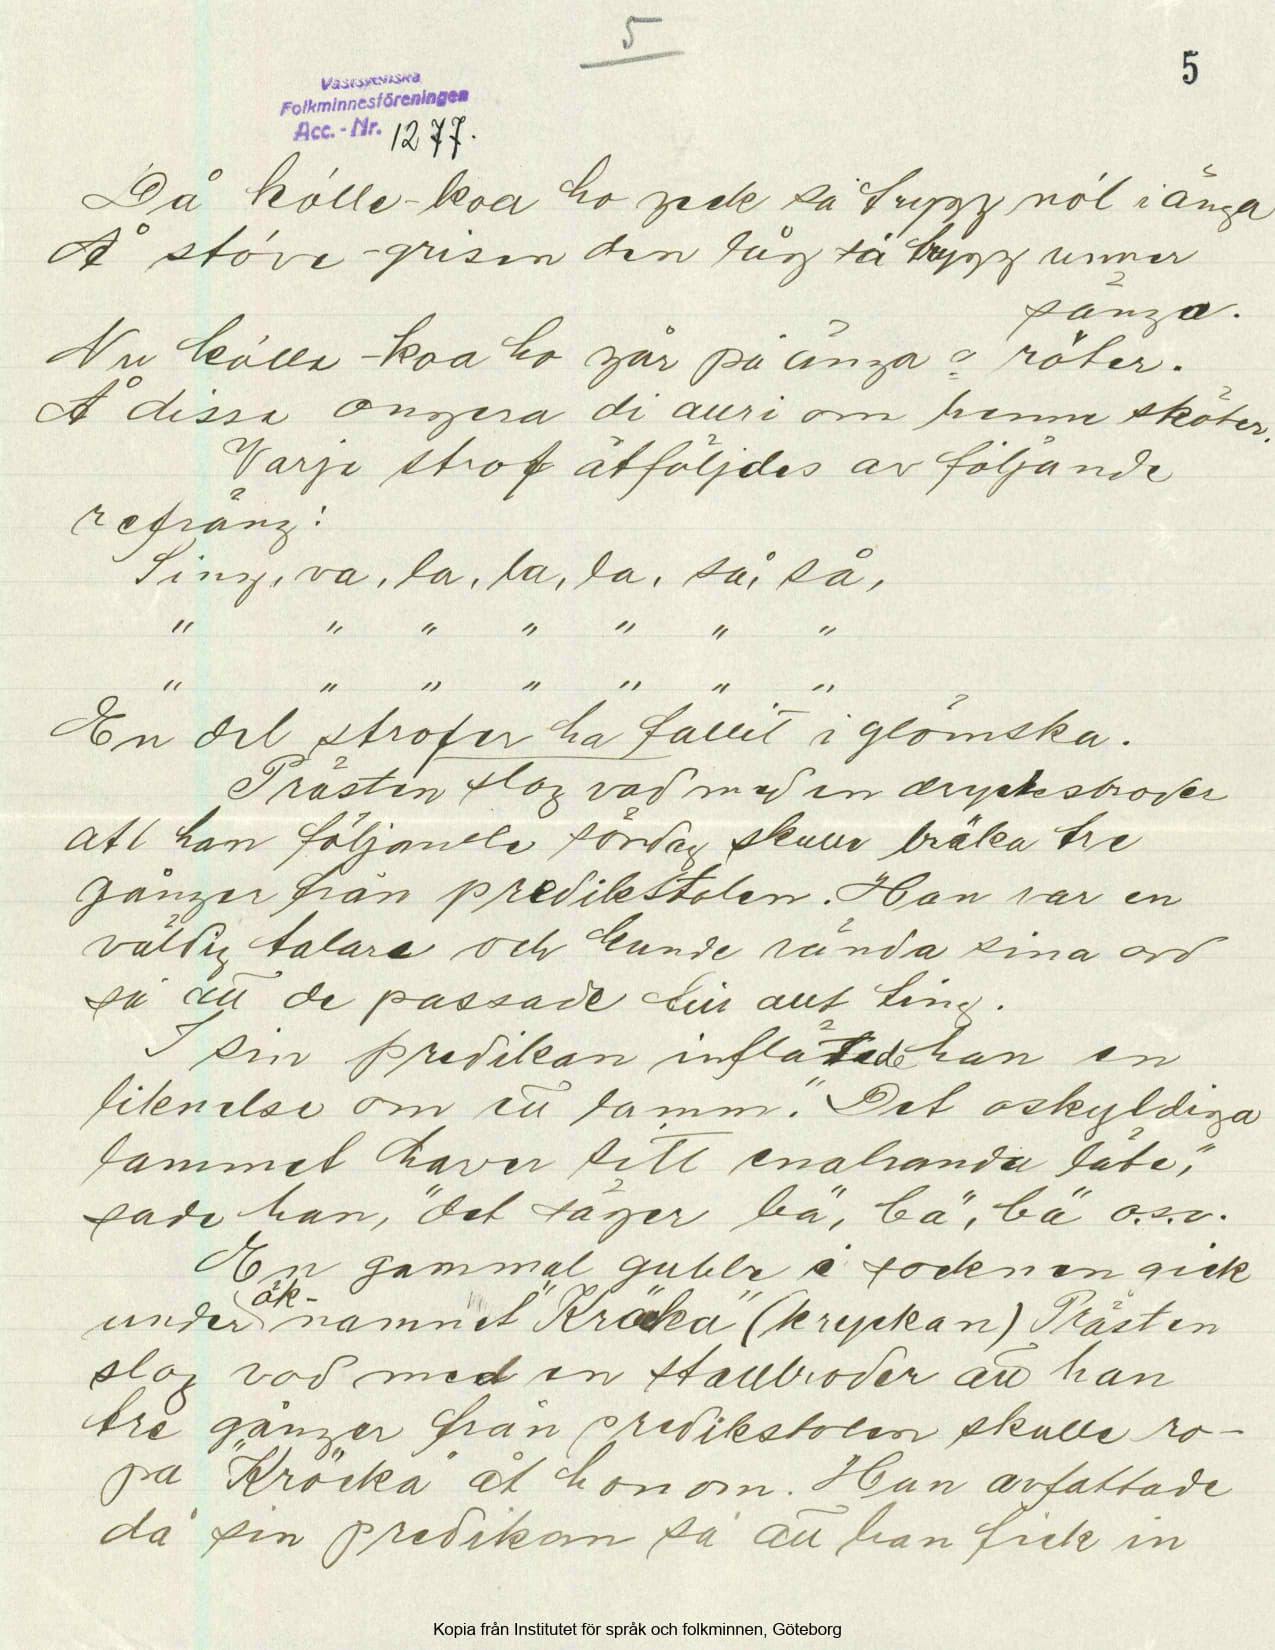 5
5
Västsvenska
Folkminnesföreningen
Acc.-Nr. 1277.
Då kólle-koa ho geck så trygg nól i änga
Å stóve-grisen den låg så trygg unner
sänga.
Nu kólle-koa ho går på änga o röter.
Å dissa ongera di auri om henne sköter.
Varje strof åtföljdes av följande
refräng:
Sing, va, la, la, la, så, så,
" " " " " " "
" " " " " " "
En del strofer ha fallit i glömska.
Prästen slog vad med en dryckesbroder
att han följande söndag skulle bräka tre
gånger från predikstolen. Han var en
väldig talare och kunde vända sina ord
så att de passade till allt ting.
I sin predikan inflätade han en
liknelse om ett lamm. "Det oskyldiga
lammet haver sitt enahanda läte,"
sade han, "det säger bä", bä", bä" o.s.v.
En gammal gubbe i socknen gick
under ök-namnet "Kräcka" (kryckan) Prästen
slog vad med en stallbroder att han
tre gånger från predikstolen skulle ro-
pa "Kröcka" åt honom. Han avfattade
då sin predikan så att han fick in
Kopia från Institutet för språk och folkminnen, Göteborg